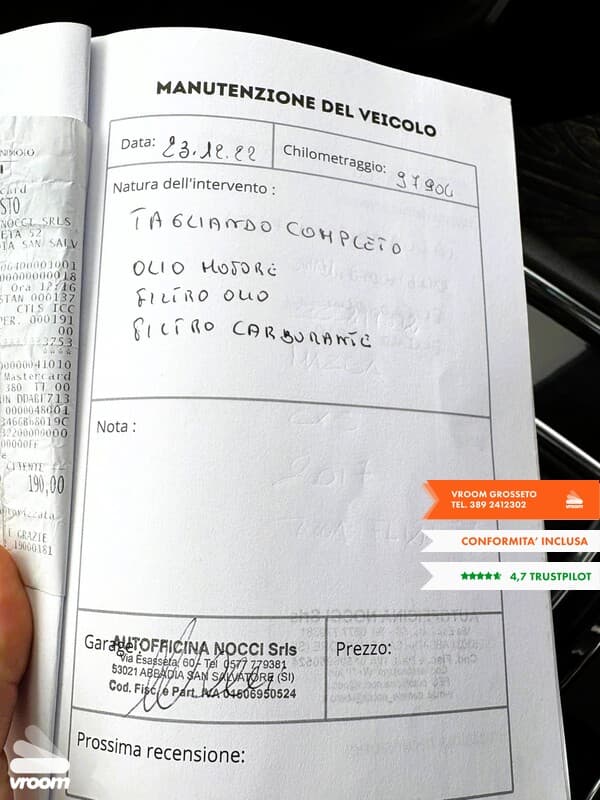 MANUTENZIONE DEL VEICOLO
Data: 23.12.22
Chilometraggio: 97900
Natura dell'intervento :
TAGLIANDO COMPLETO
OLIO MOTORE
FILTRO OLIO
FILTRO CARBURANTE
Nota :
Garage:
AUTOFFICINA NOCCI Srls
Via Esasseta, 60 - Tel 0577 779381
53021 ABBADIA SAN SALVATORE (SI)
Cod. Fisc. e Part. IVA 01506950524
Prezzo:
Prossima recensione:
STO
NOCCI SRLS
ETA 52
IA SAN SALV
06400001001
00000000018
Ora 12:16
STAN 000137
CTLS ICC
PER. 000191
00
00000041010
Mastercard
UN DDABF713
0000048001
CLIENTE
190,00
E GRAZIE
19000181
VROOM GROSSETO
TEL. 389 2412302
vroom
CONFORMITA' INCLUSA
4,7 TRUSTPILOT
vroom